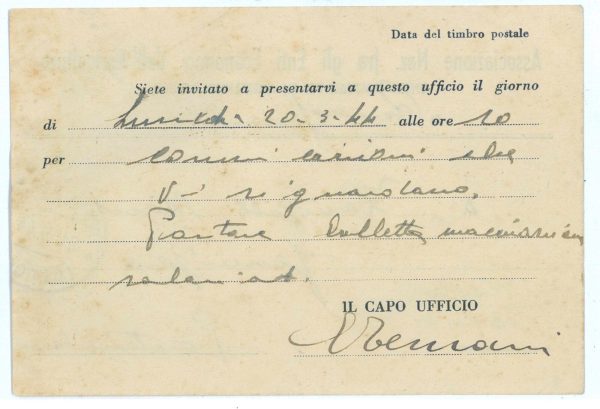 Data del timbro postale
Siete invitato a presentarvi a questo ufficio il giorno
di 20-3-44 alle ore 10
per comunicazioni che
Vi riguardano.
Portare bolletta
IL CAPO UFFICIO